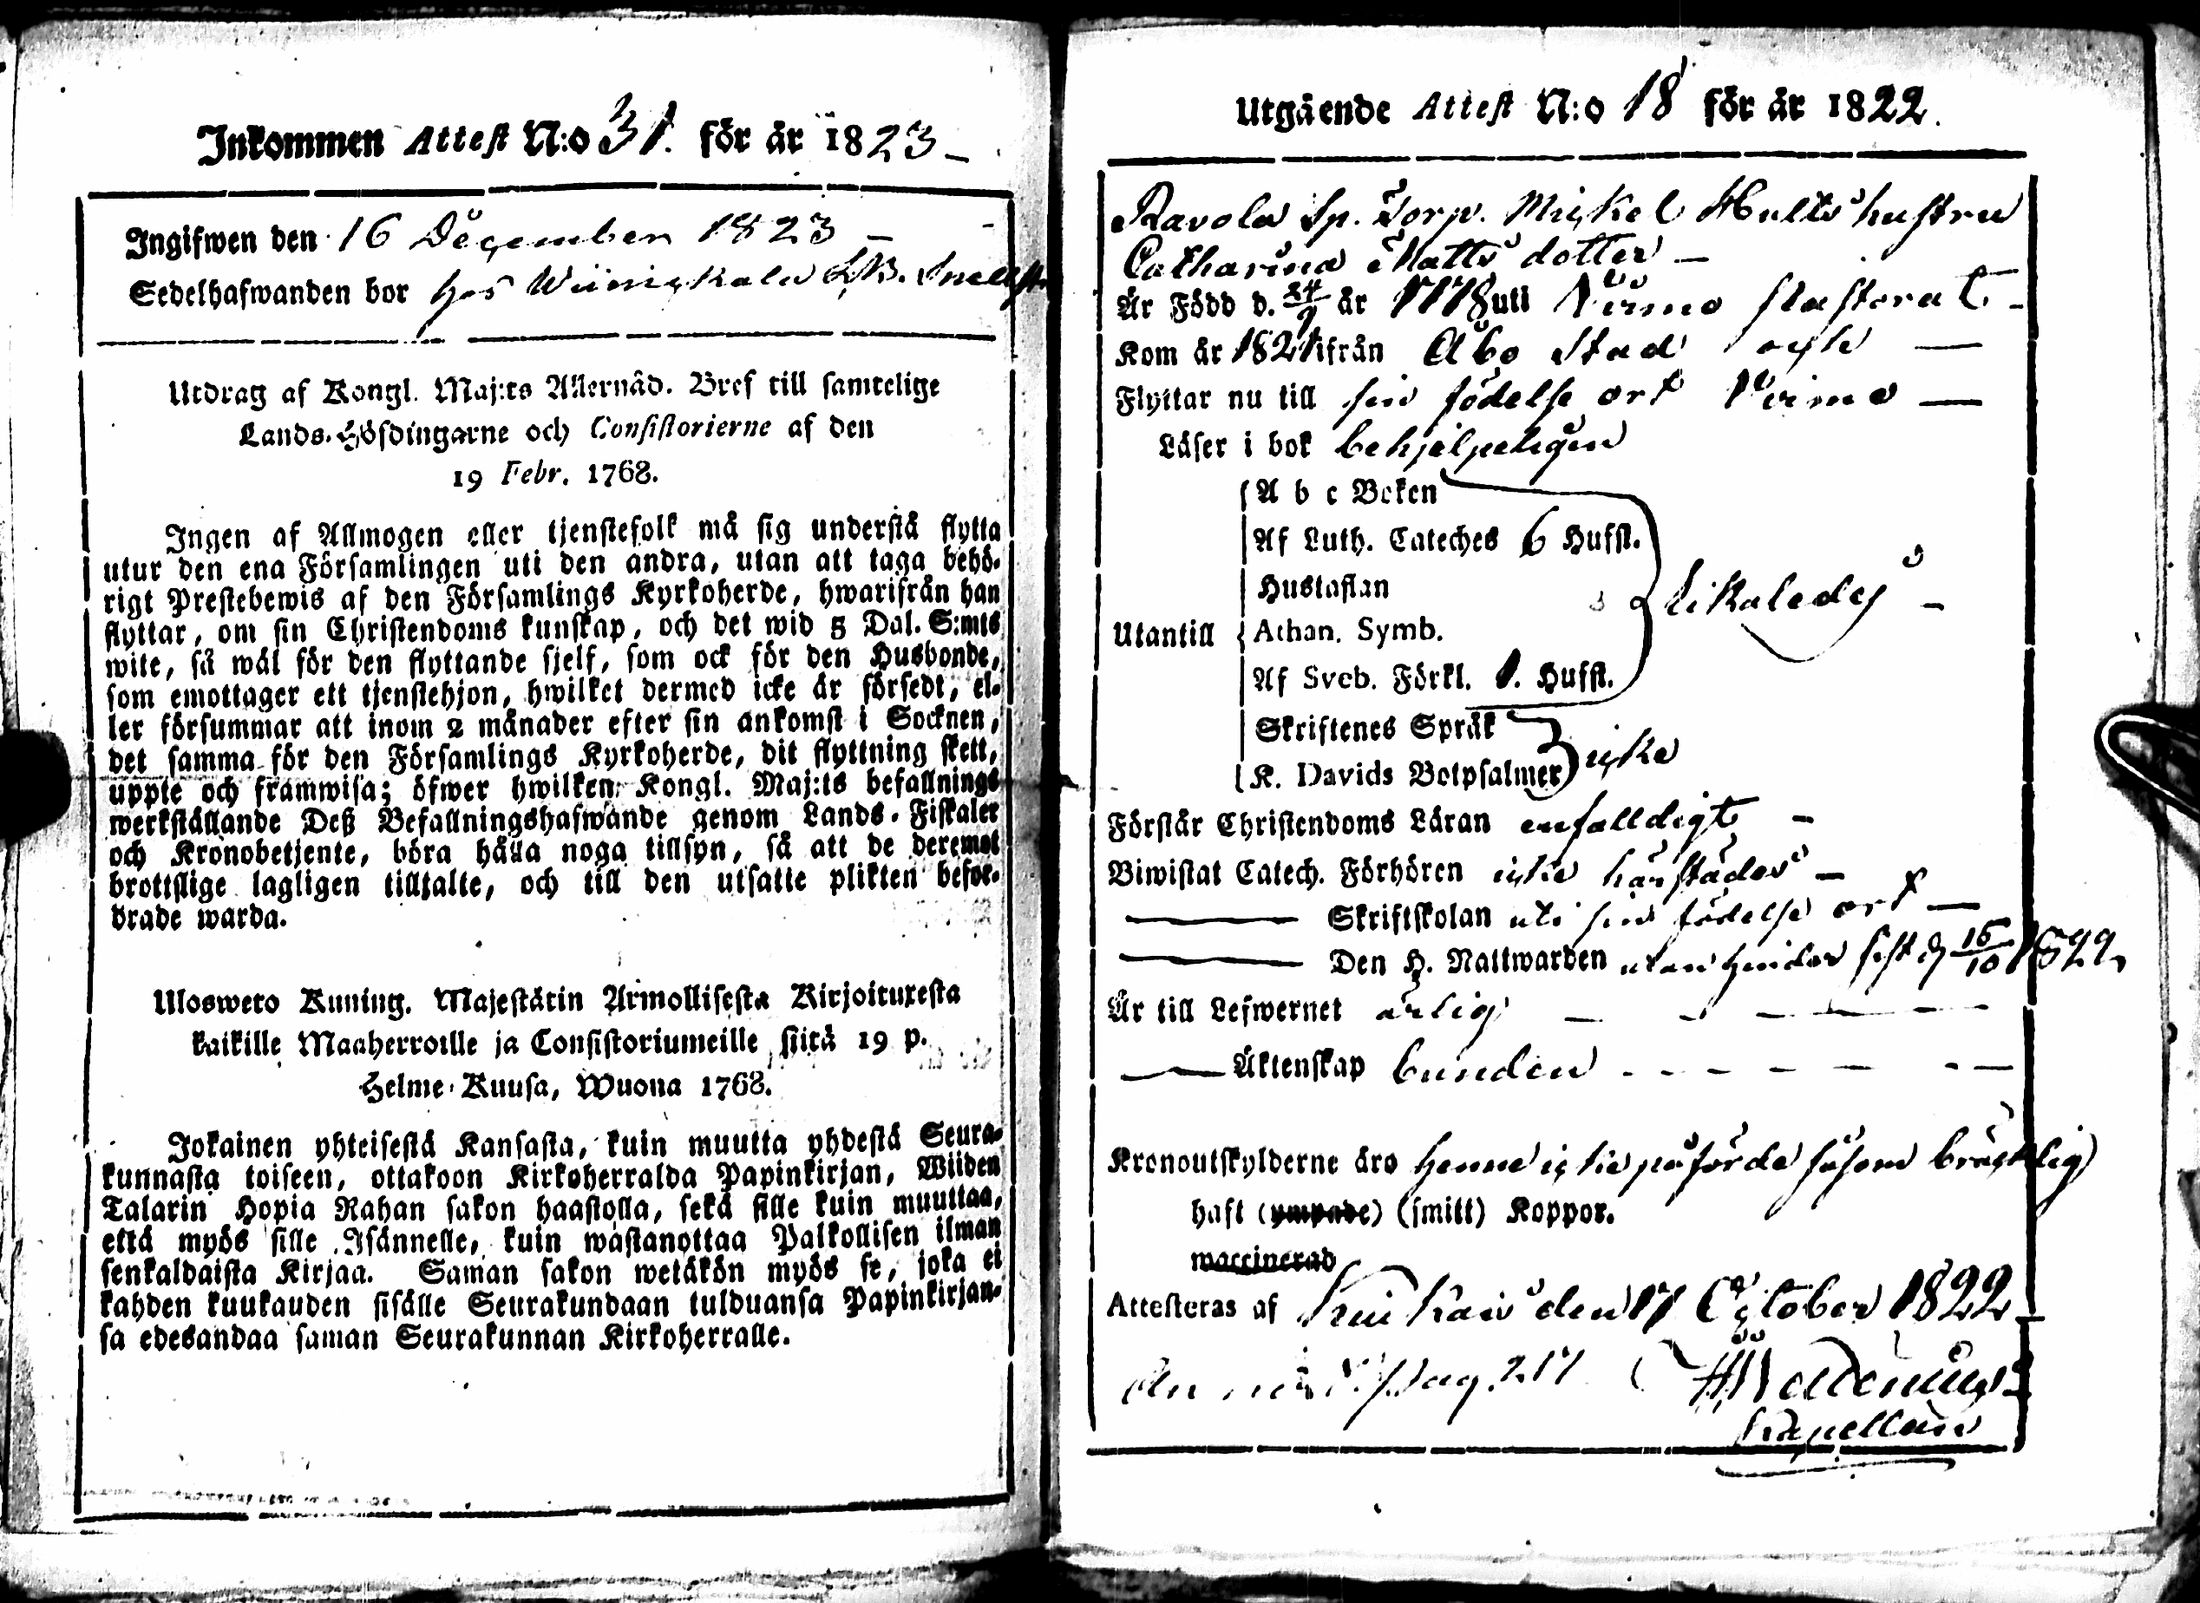 Inkommen Attest N:o 31. för år 1823
Ingifwen den 16 December 1823
Sedelhafwanden bor hos
Utdrag af Kongl. Maj:ts Allernåd. Bref till samtelige
Lands-Höfdingarne och Consistorierne af den
19 Febr. 1768.
Ingen af Allmogen eller tjenstefolk må sig understå flytta
utur den ena Församlingen uti den andra, utan att taga behö-
rigt Prestebewis af den Församlings Kyrkoherde, hwarifrån han
flyttar, om sin Christendoms kunskap, och det wid 5 Dal. S:mts
wite, så wäl för den flyttande sjelf, som ock för den Husbonde,
som emottager ett tjenstehjon, hwilket dermed icke är försedt, el-
ler försummar att inom 2 månader efter sin ankomst i Socknen,
det samma för den Församlings Kyrkoherde, dit flyttning skett,
uppte och framwisa; öfwer hwilken Kongl. Maj:ts befallnings
werkställande Deß Befallningshafwande genom Lands-Fiskaler
och Kronobetjente, böra hålla noga tillsyn, så att de deremot
brottslige lagligen tilltalte, och till den utsatte plikten befor-
drade warda.
Ulosweto Kuning. Majestätin Armollisesta Kirjoituxesta
kaikille Maaherroille ja Consistoriumeille siitä 19 p.
Helme-Kuusa, Wuona 1768.
Jokainen yhteisestä Kansasta, kuin muutta yhdestä Seura-
kunnasta toiseen, ottakoon Kirkoherralda Papinkirjan, Wiiden
Talarin Hopia Rahan sakon haastolla, sekä sille kuin muuttaa,
että myös sille Isännelle, kuin wastanottaa Palkollisen ilman
senkaldaista Kirjaa. Saman sakon wetäkön myös se, joka ei
kahden kuukauden sisälle Seurakundaan tulduansa Papinkirjan-
sa edesandaa saman Seurakunnan Kirkoherralle.
Utgående Attest N:o 18 för år 1822.
Ravola Sp. Torp. Mickel Hults hustru
Catharina Matts dotter
Är Född d. 24/9 år 1778 uti Virmo Pastorat
Kom år 1821 ifrån Åbo Stad
Flyttar nu till sin födelse ort Virmo
Läser i bok behjelpeligen
A b c Boken
Af Luth. Cateches 6 Hufst.
Hustaflan
Utantill
likaledes
Athan. Symb.
Af Sveb. Förkl. 1. Hufst.
Skriftenes Språk
icke
K. Davids Botpsalmer
Förstår Christendoms Läran enfalldigt
Biwistat Catech. Förhören icke härstädes
Skriftskolan uti sin födelse ort
Den H. Nattwarden utan hinder sist d. 15/10 1822.
Är till Lefwernet ärlig
Äktenskap bunden
Kronoutskylderne äro henne icke påförde såsom bräcklig
haft (ympade) (smitt) Koppor.
waccinerad
Attesteras af Kuikais den 17 October 1822
Pag. 217
Kapellan